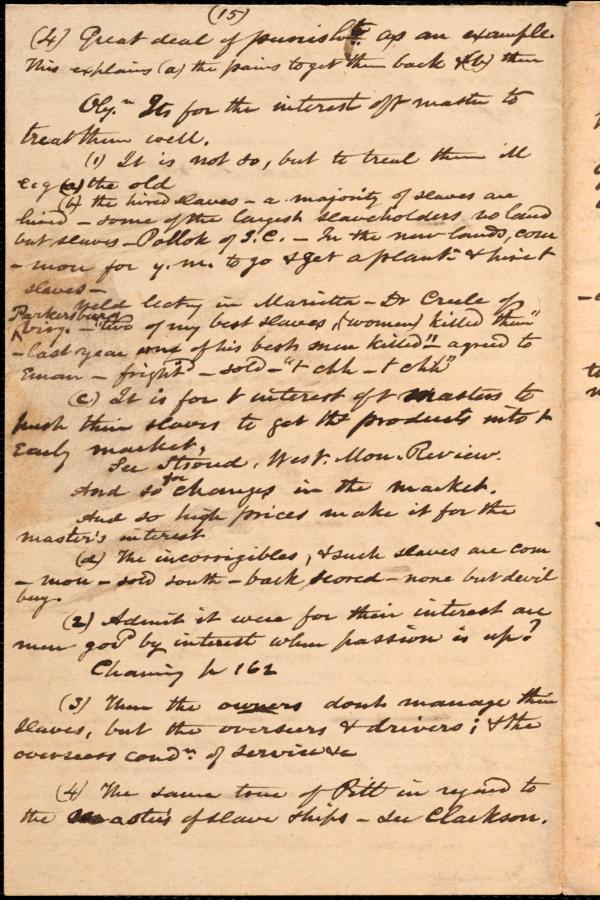 (15)
(4) Great deal of punisht. as an example.
This explains (a) the pains to get them back & (b) their
Obj.n Its for the interest of t master to
treat them well.
(1) It is not so, but to treat them ill
e.g (a) the old
(b) the hired slaves - a majority of slaves are
hired - some of the largest slaveholders no land
but slaves - Pollok of S.C. - In the new lands, com
- mon for y. m. to go & get a plantn & hire t
slaves -
Weld lectg in Marietta - Dr Creele of
Parkersburg
Virg. - "two of my best slaves, (women) killed them"
- last year one of his best men killed" agreed to
Eman - frightd - sold - "t chh - t chh"
(c) It is for t interest of t masters to
push their slaves to get the products into t
Early market,
See Stroud, West. Mon. Review.
And so for changes in the market.
And so high prices make it for the
master's interest
(d) The incorrigibles, & such slaves are com
- mon - sold south - back scored - none but devil
buy.
(2) Admit it were for their interest are
men govd by interest when passion is up?
Channing p 162
(3) Then the owners dont manage their
slaves, but the overseers & drivers; & the
overseers condn of service &c
(4) The same tone of Pitt in regard to
the masters of slave ships - see Clarkson.